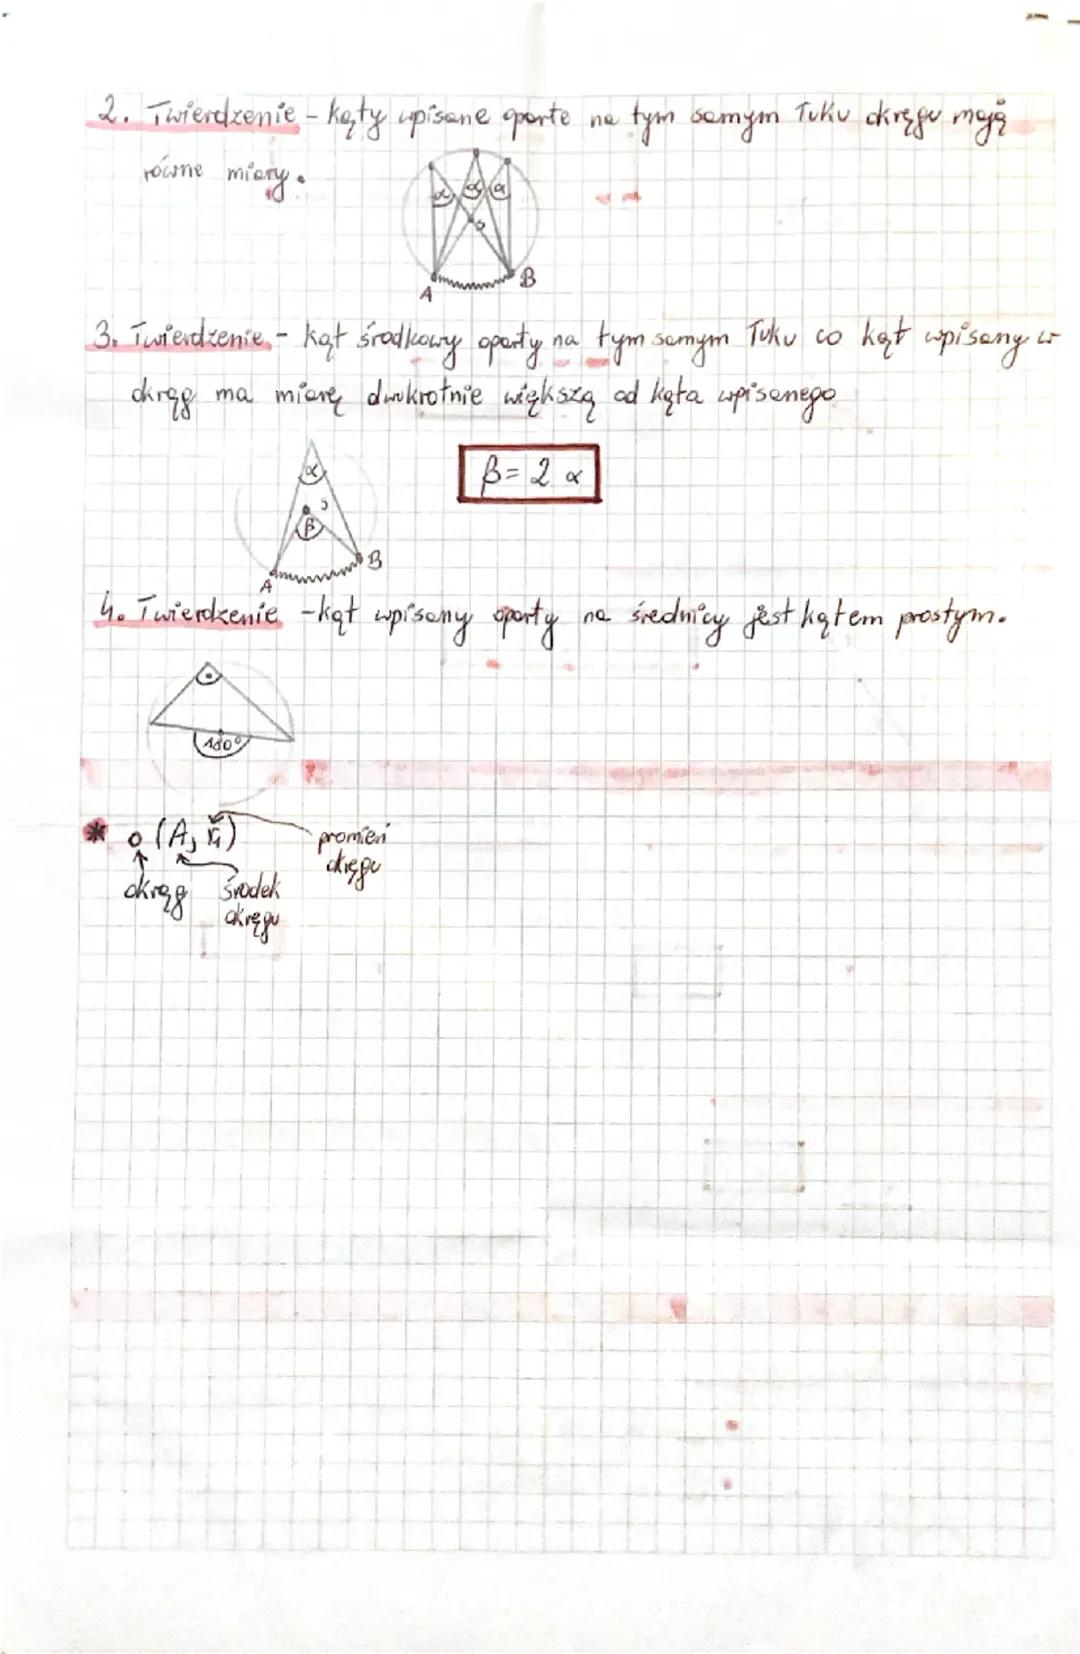 2. Twierdzenie - kąty wpisane oparte na tym samym łuku okręgu mają
równe miary.
α α α
S
A B
3. Twierdzenie - kąt środkowy oparty na tym samym łuku co kąt wpisany w
okrąg ma miarę dwukrotnie większą od kąta wpisanego
α
β = 2 α
S
β
A B
4. Twierdzenie - kąt wpisany oparty na średnicy jest kątem prostym.
180°
* o (A, r₁)
promień
okręgu
okrąg środek
okręgu